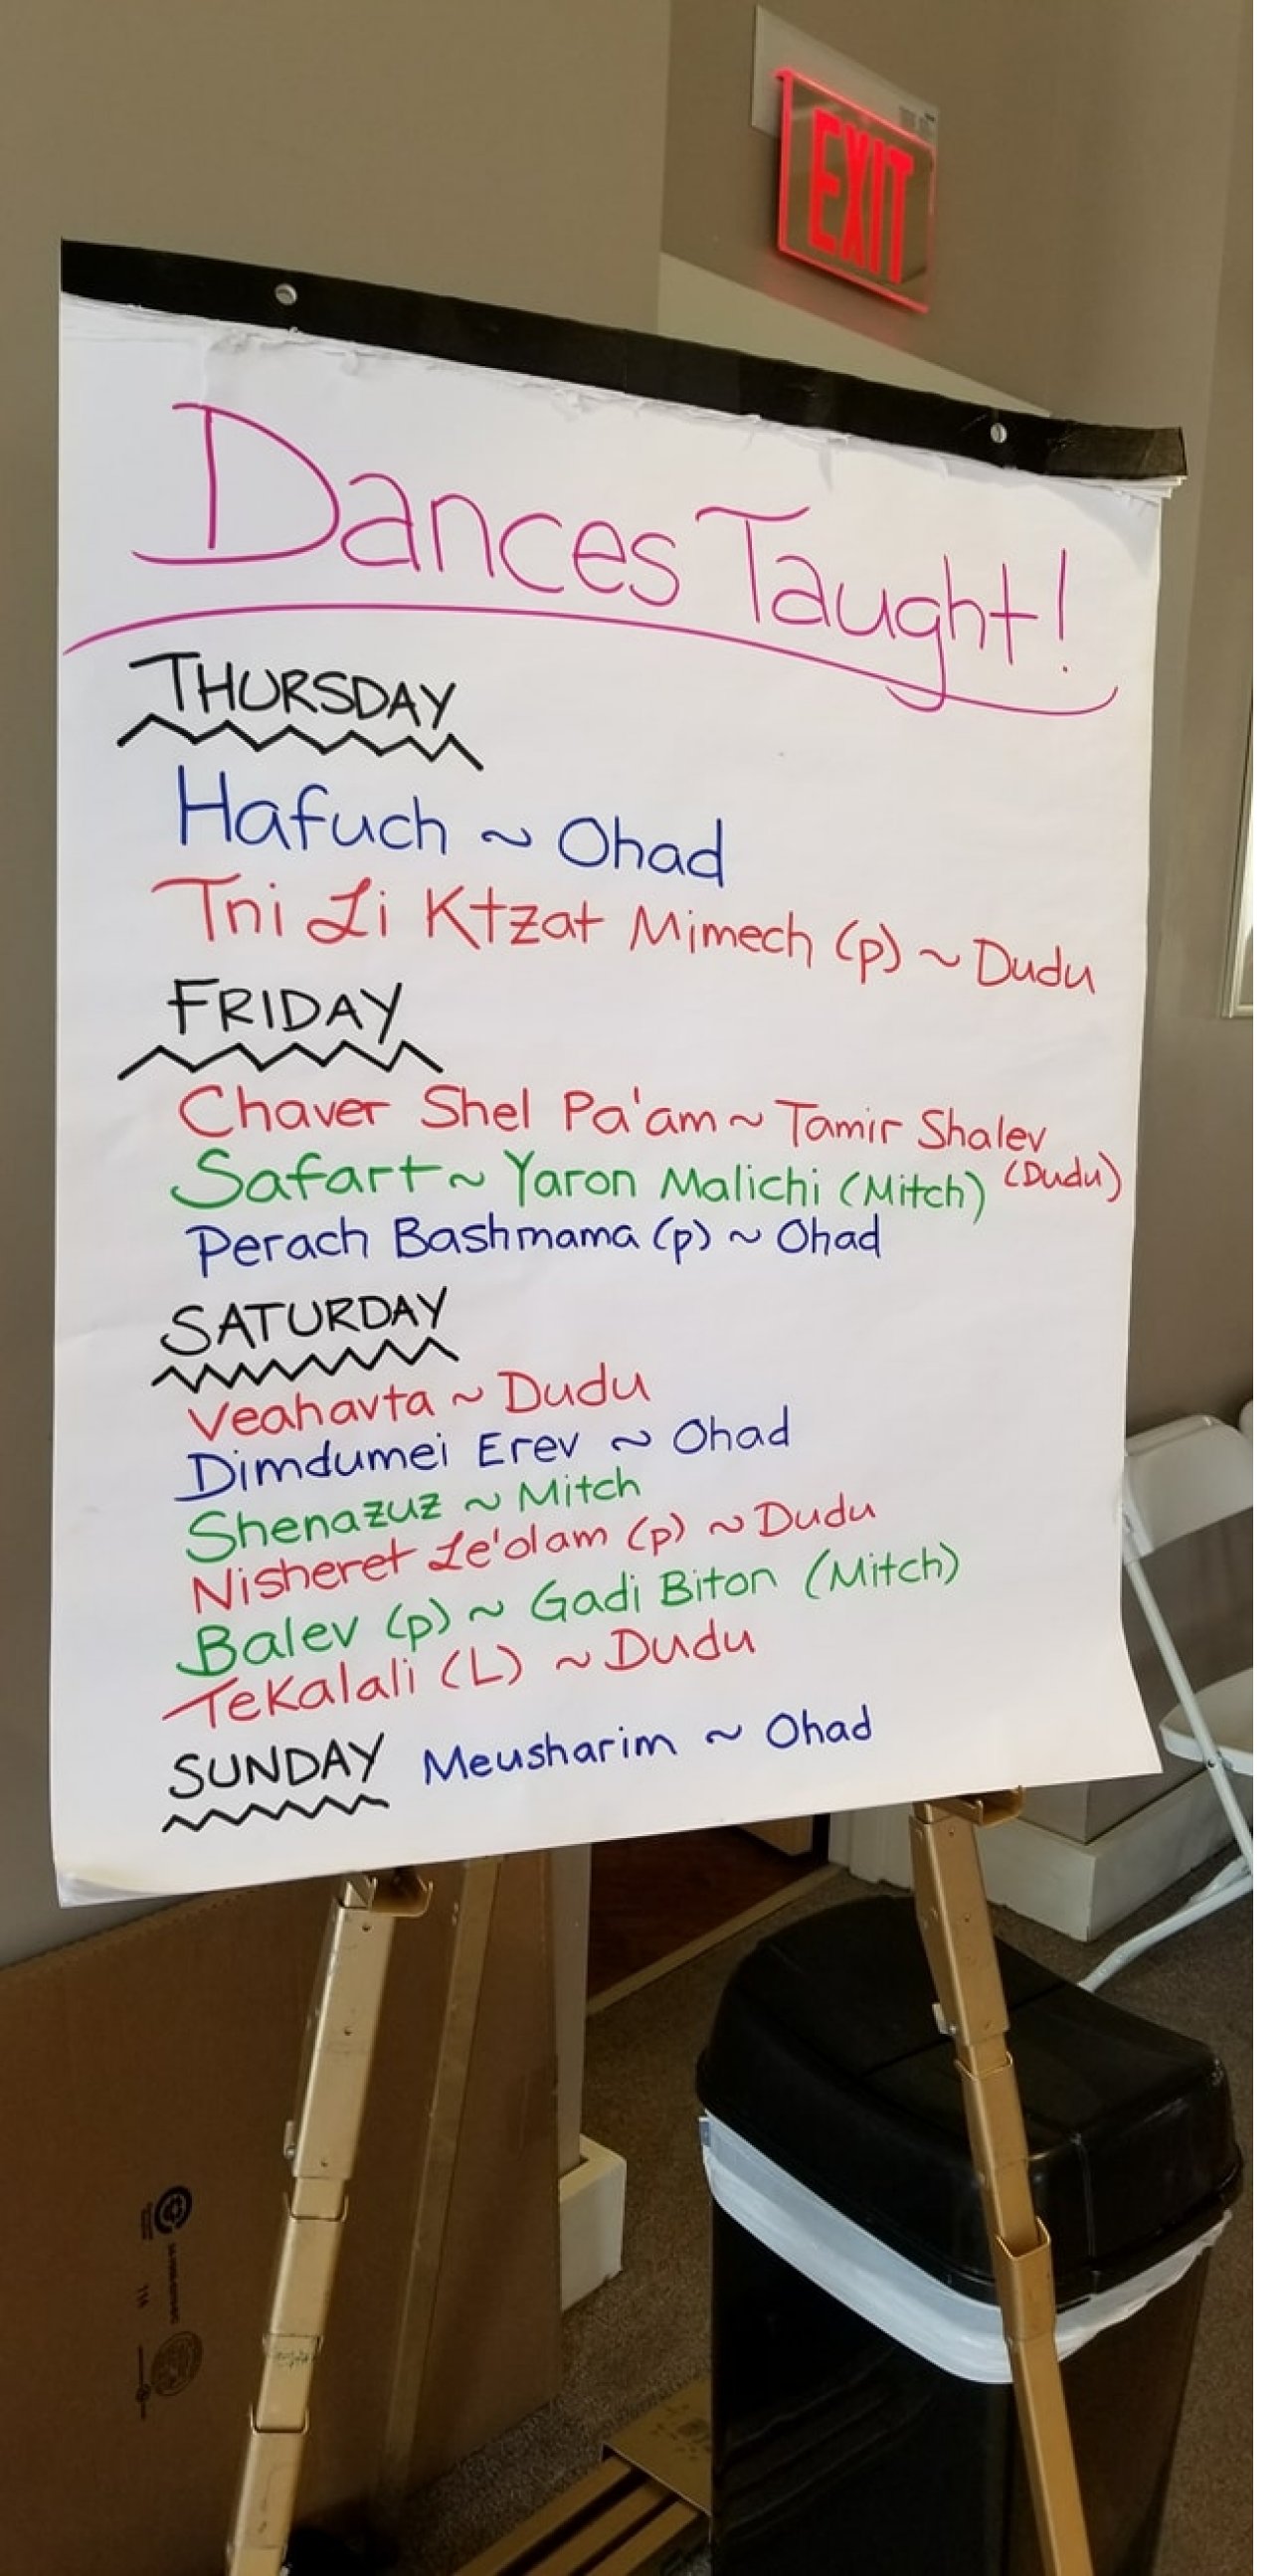 EXIT
Dances Taught!
THURSDAY
Hafuch ~ Ohad
Tni Li Ktzat Mimech (p) ~ Dudu
FRIDAY
Chaver Shel Pa'am ~ Tamir Shalev (Dudu)
Safart ~ Yaron Malichi (Mitch)
Perach Bashmama (p) ~ Ohad
SATURDAY
Veahavta ~ Dudu
Dimdumei Erev ~ Ohad
Shenazuz ~ Mitch
Nisheret Le'olam (p) ~ Dudu
Balev (p) ~ Gadi Biton (Mitch)
Tekalali (L) ~ Dudu
SUNDAY Meusharim ~ Ohad